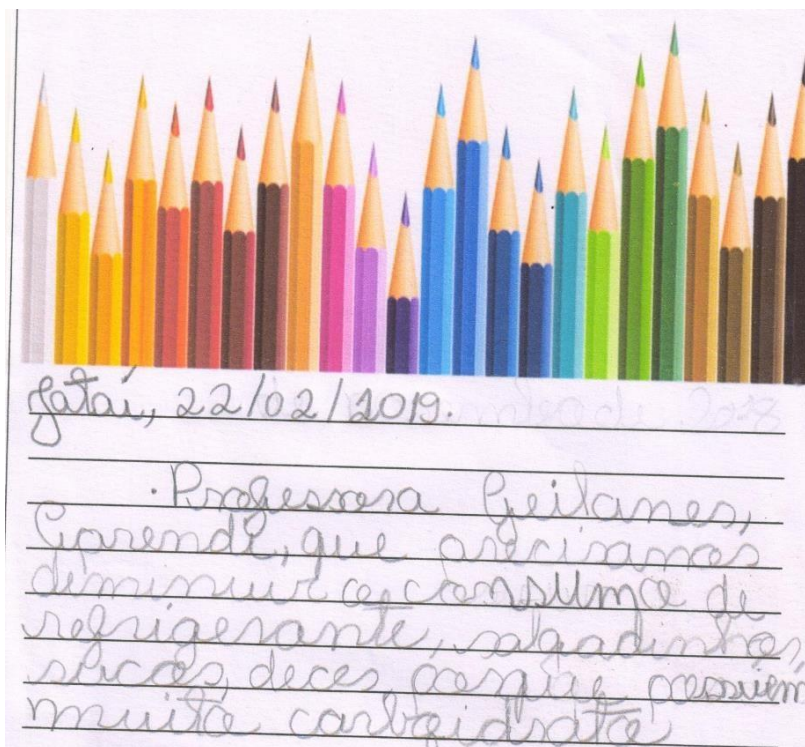 Jataí, 22/02/2019.
Professora Geilanes,
Aprendi, que precisamos
diminuir o consumo de
refrigerante, salgadinhos,
sucos, doces porque possuem
muito carboidrato